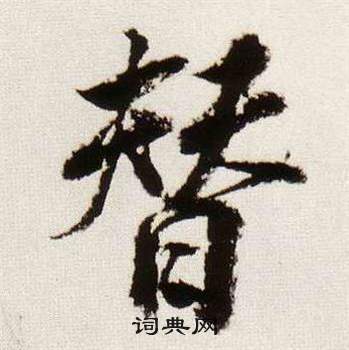 替
词典网